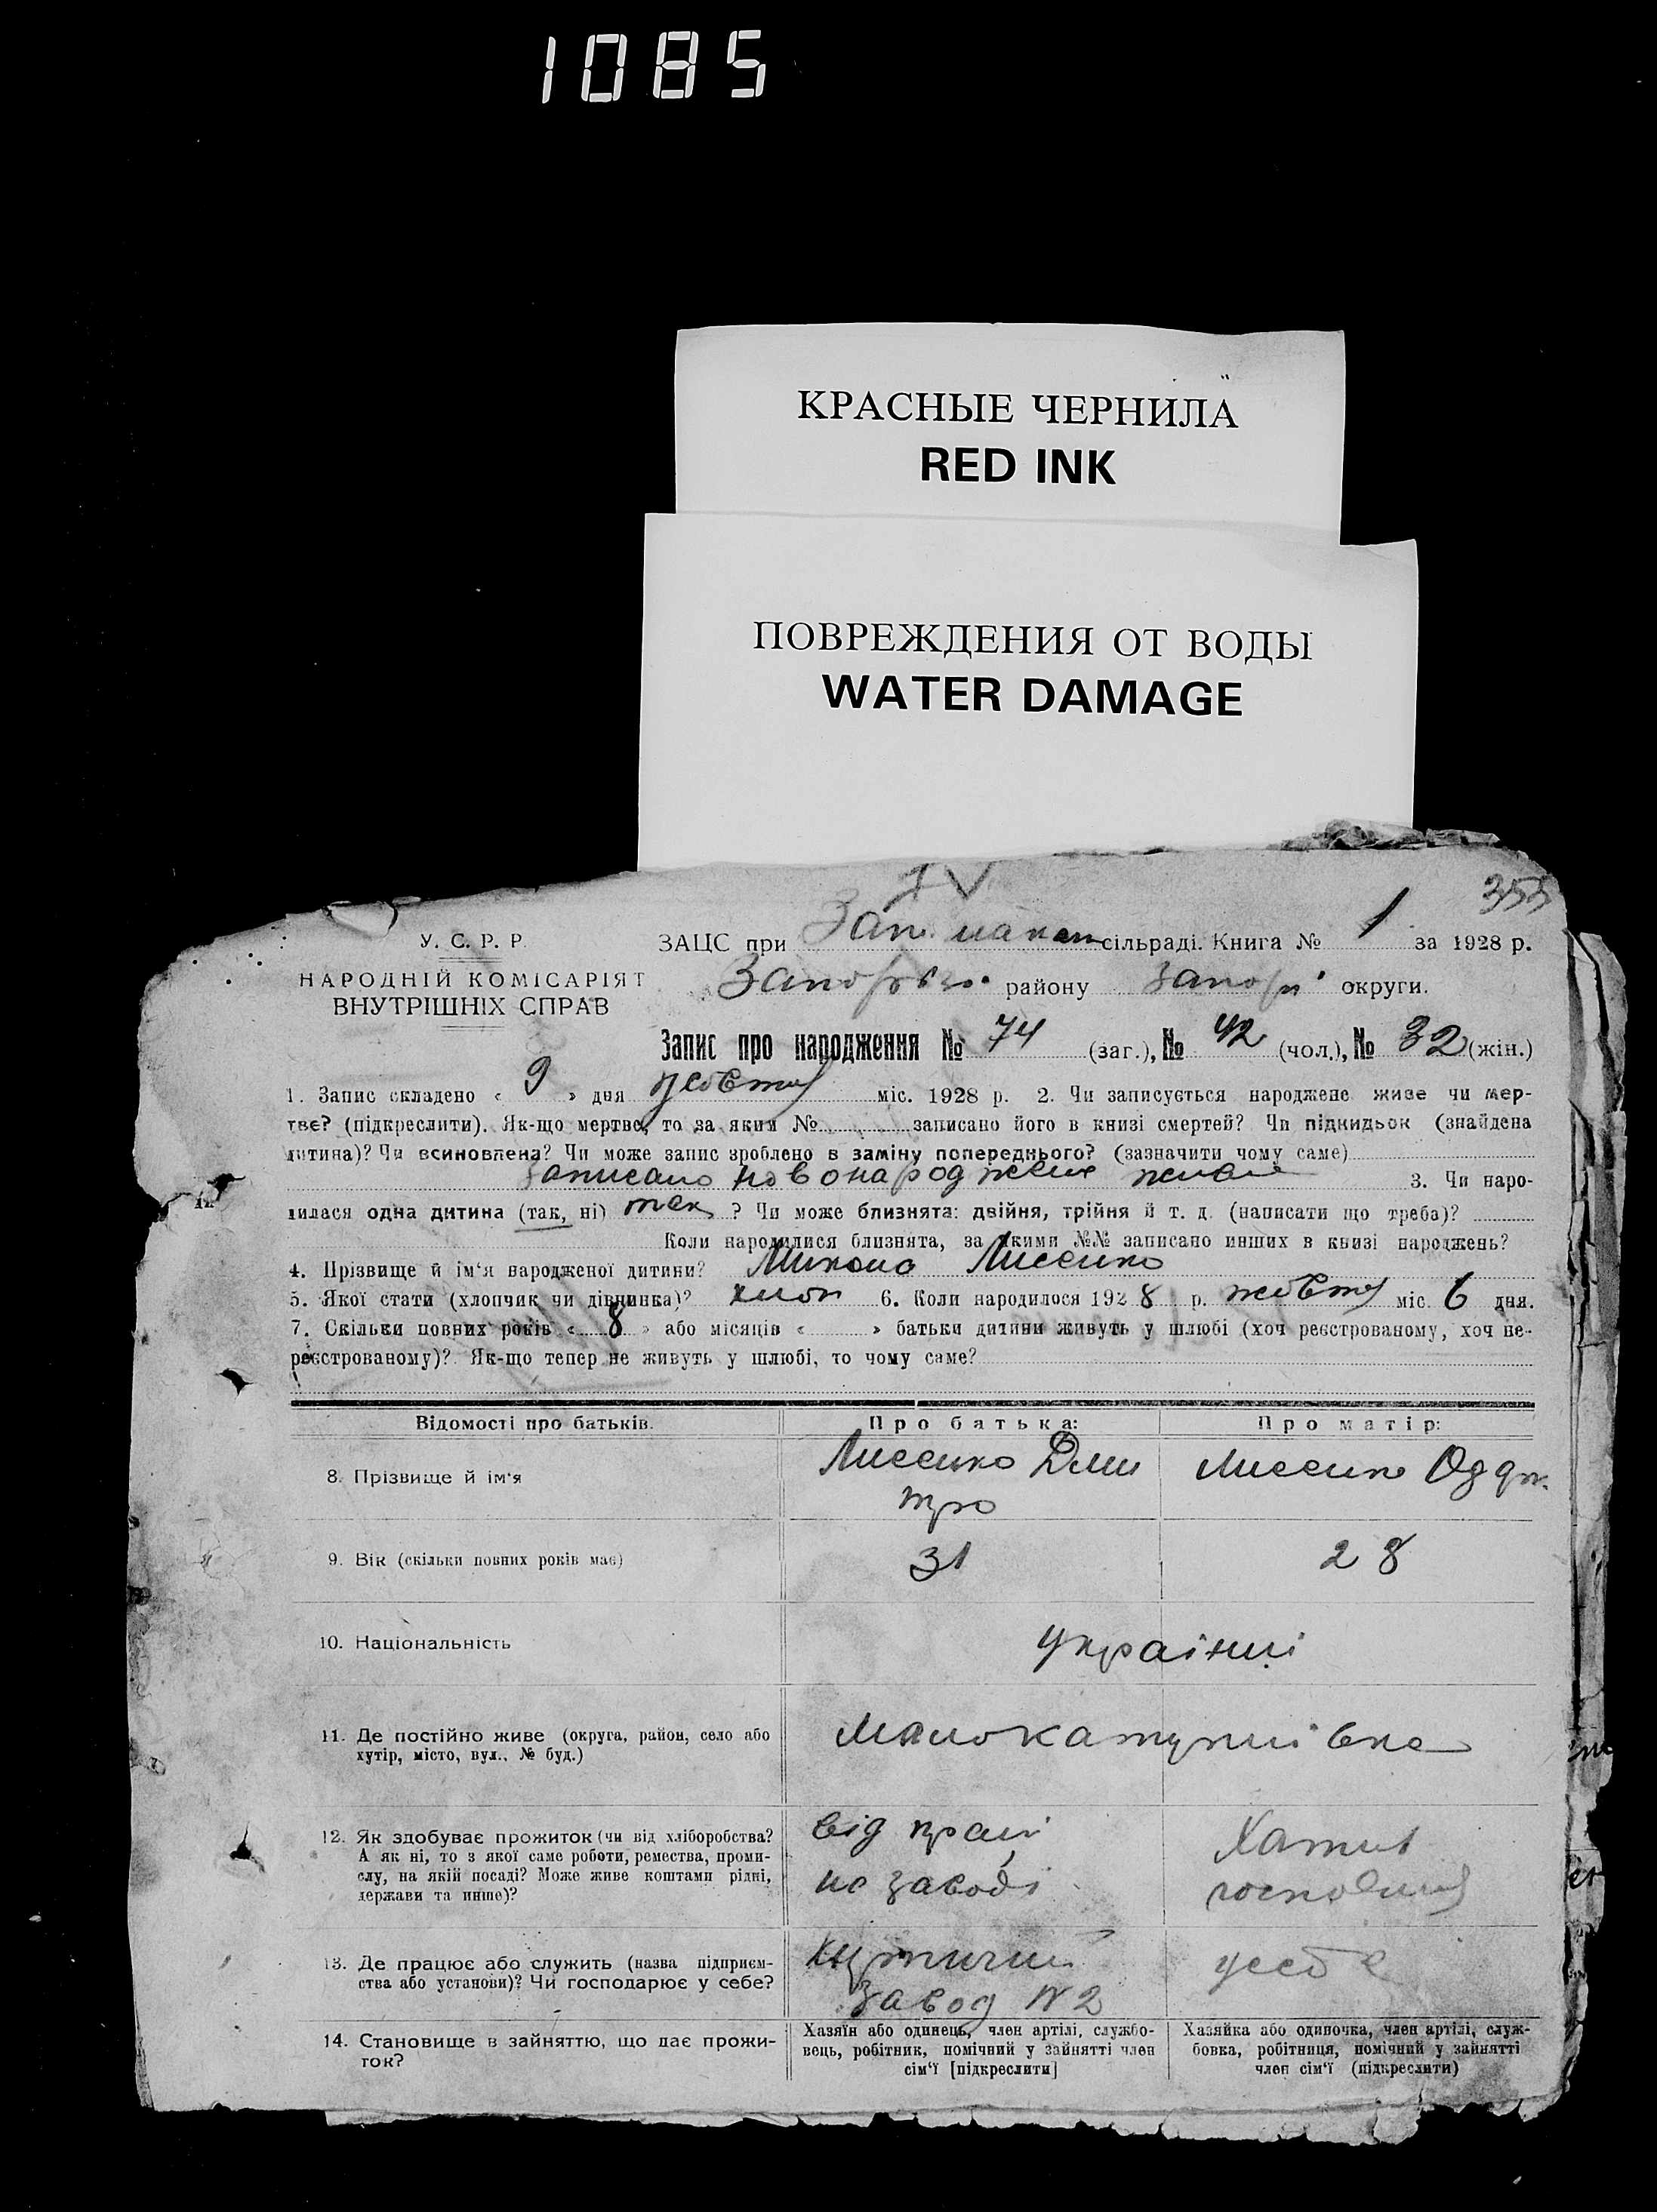 1085
КРАСНЫЕ ЧЕРНИЛА
RED INK
ПОВРЕЖДЕНИЯ ОТ ВОДЫ
WATER DAMAGE
IV
353
У. С. Р. Р.
НАРОДНІЙ КОМІСАРІЯТ
ВНУТРІШНІХ СПРАВ
ЗАЦС при сільраді. Книга № 1 за 1928 р.
району округи.
Запис про народження № 74 (заг.), № 42 (чол.), № 32 (жін.)
1. Запис складено « 9 » дня жовтня міс. 1928 р. 2. Чи записується народжене живе чи мер-
тве? (підкреслити). Як-що мертве, то за яким № записано його в книзі смертей? Чи підкидьок (знайдена
дитина)? Чи всиновлена? Чи може запис зроблено в заміну попереднього? (зазначити чому саме)
записано новонароджене живе 3. Чи наро-
дилася одна дитина (так, ні) так ? Чи може близнята: двійня, трійня й т. д. (написати що треба)?
Коли народилися близнята, за якими №№ записано инших в книзі народжень?
4. Прізвище й ім'я народженої дитини? Микола Лисенко
5. Якої стати (хлопчик чи дівчинка)? хлоп 6. Коли народилося 1928 р. жовтня міс. 6 дня.
7. Скільки повних років « 8 » або місяців « » батьки дитини живуть у шлюбі (хоч реєстрованому, хоч не-
реєстрованому)? Як-що тепер не живуть у шлюбі, то чому саме?
Відомості про батьків. Про батька: Про матір:
8. Прізвище й ім'я Лисенко Дми Лисенко
тро
9. Вік (скільки повних років має) 31 28
10. Національність українці
11. Де постійно живе (округа, район, село або
хутір, місто, вул., № буд.) Малокатеринівка
12. Як здобуває прожиток (чи від хліборобства?
А як ні, то з якої саме роботи, ремества, проми-
слу, на якій посаді? Може живе коштами рідні,
держави та инше)?
від праці
на заводі
Хатня
13. Де працює або служить (назва підприєм-
ства або установи)? Чи господарює у себе?
завод N 2
у себе
14. Становище в зайняттю, що дає прожи-
ток?
Хазяїн або одинець, член артілі, службо-
вець, робітник, помічний у зайнятті член
сім'ї [підкреслити]
Хазяйка або одиночка, член артілі, служ-
бовка, робітниця, помічний у зайнятті
член сім'ї (підкреслити)